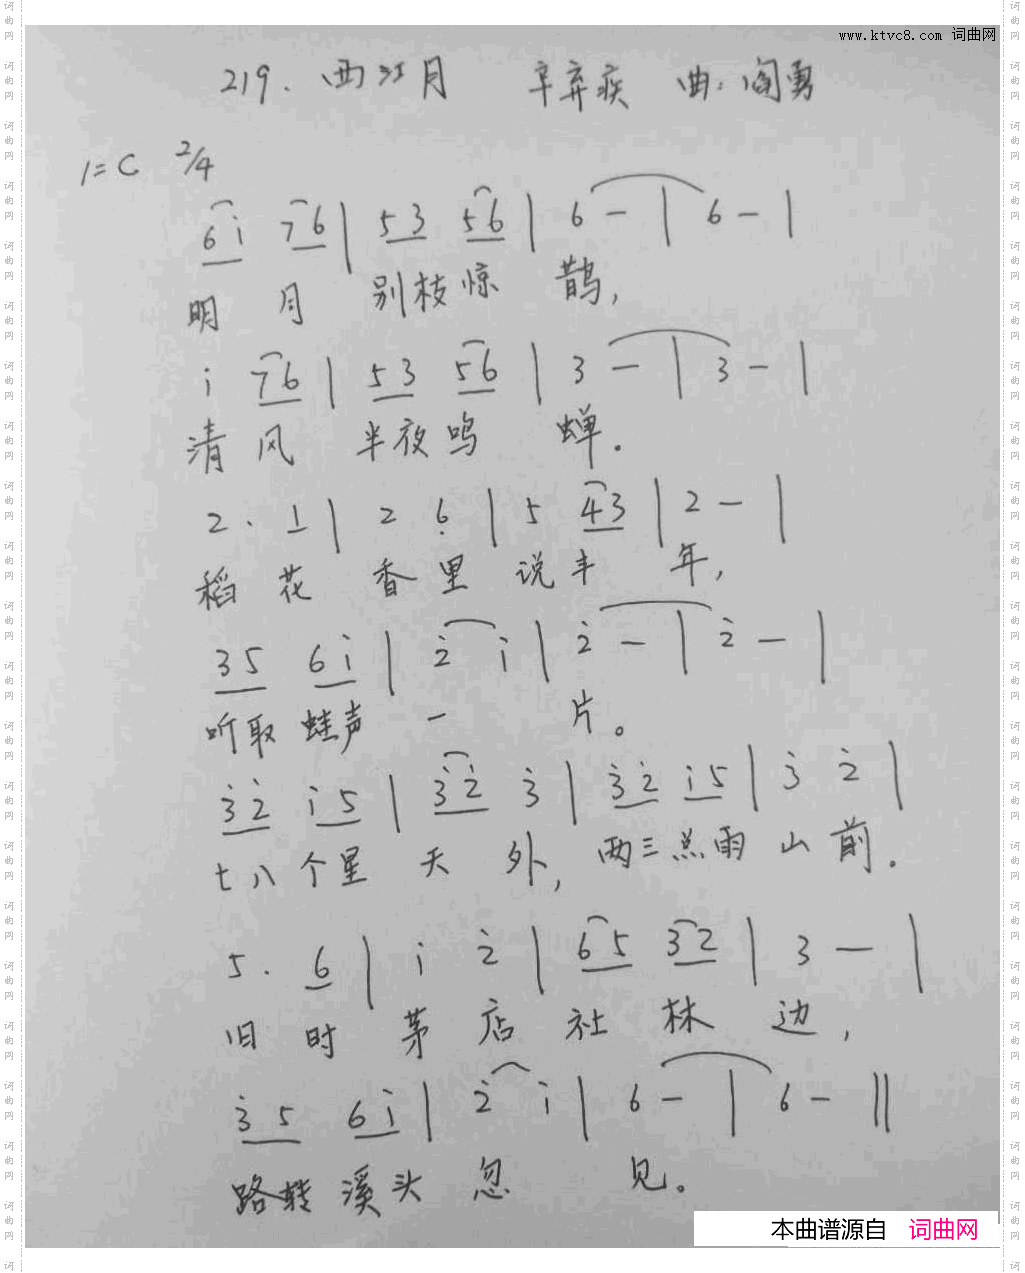 www.ktvc8.com 词曲网
219. 西江月 辛弃疾 曲: 阎勇
1=C 2/4
6i 76 | 53 56 | 6 - | 6 - |
明 月 别枝惊 鹊,
i 76 | 53 56 | 3 - | 3 - |
清 风 半夜鸣 蝉。
2. 1 | 2 6̣ | 5 43 | 2 - |
稻 花 香 里 说丰 年,
35 6i | 2̇ i | 2̇ - | 2̇ - |
听取 蛙声 一 片。
3̇2̇ i5 | 3̇2̇ 3̇ | 3̇2̇ i5 | 3̇ 2̇ |
七八 个星 天 外, 两三点雨 山 前.
5. 6 | i 2̇ | 65 32 | 3 - |
旧 时 茅 店 社 林 边,
3̇5 6i | 2̇ i | 6 - | 6 - ‖
路转 溪头 忽 见。
本曲谱源自 词曲网